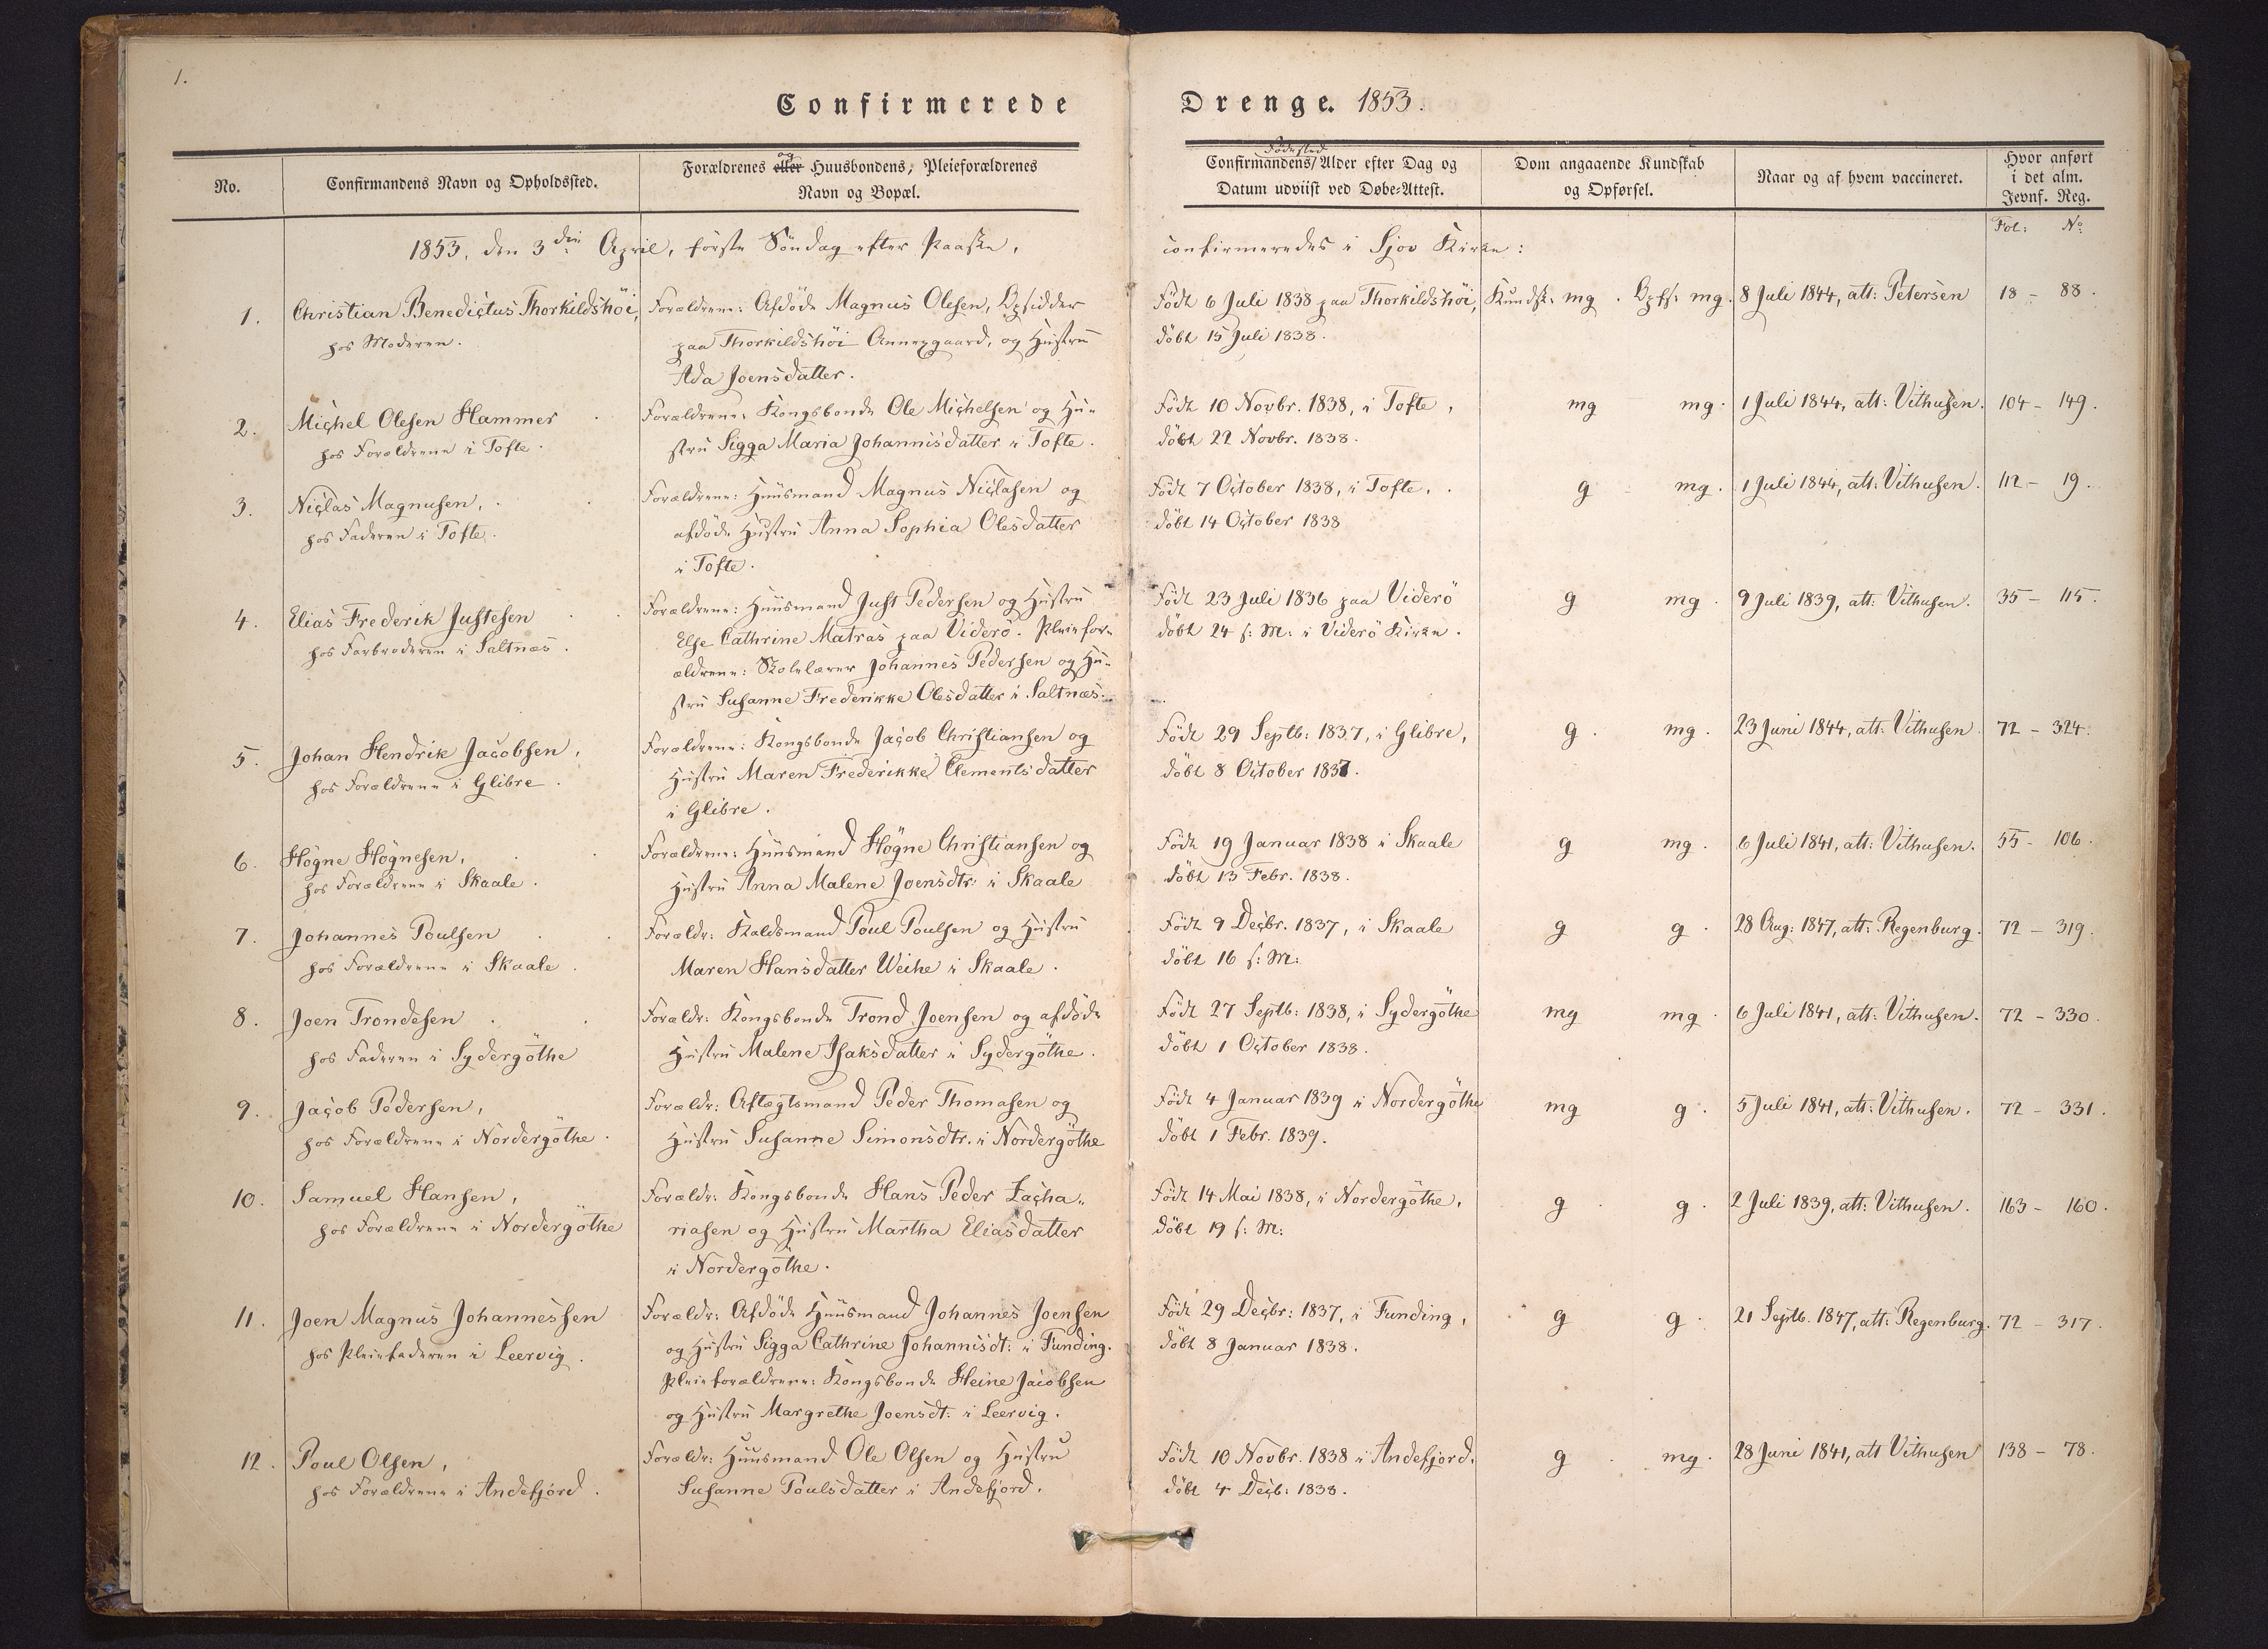 1.
Confirmerede Drenge. 1853.
No.
Confirmandens Navn og Opholdssted.
Forældrenes eller og Huusbondens, Pleieforældrenes
Navn og Bopæl.
Fødested
Confirmandens/Alder efter Dag og
Datum udviist ved Døbe-Attest.
Dom angaaende Kundskab
og Opførsel.
Naar og af hvem vaccineret.
Hvor anført
i det alm.
Jevnf. Reg.
Fol: No:
1853, den 3die April, første Söndag efter Paaske, confirmeredes i Sjov Kirke:
1. Christian Benedictus Thorkildshöi,
hos Moderen.
Forældrene: Afdöde Magnus Olesen, Opsidder
paa Thorkildshöi Annexgaard, og Hustru
Ada Joensdatter.
Födt 6 Juli 1838 paa Thorkildshöi,
döbt 15 Juli 1838.
Kundsk: mg. Opfs: mg.
8 Juli 1844, att: Petersen
18 - 88.
2. Michel Olesen Hammer
hos Forældrene i Tofte.
Forældrene: Kongsbonde Ole Michelsen og Hu-
stru Sigga Maria Johannisdatter i Tofte.
Födt 10 Novbr. 1838, i Tofte,
döbt 22 Novbr. 1838.
mg mg.
1 Juli 1844, att: Vithusen.
104 - 149.
3. Niclas Magnusen,
hos Faderen i Tofte.
Forældrene: Huusmand Magnus Niclasen og
afdöde Hustru Anna Sophia Olesdatter
i Tofte.
Födt 7 October 1838, i Tofte,
döbt 14 October 1838
g mg.
1 Juli 1844, att: Vithusen.
112 - 19.
4. Elias Frederik Justesen
hos Farbroderen i Saltnæs.
Forældrene: Huusmand Just Pedersen og Hustru
Else Cathrine Matras paa Viderö. Pleiefor-
ældrene: Skolelærer Johannes Pedersen og Hu-
stru Susanne Frederikke Olesdatter i Saltnæs.
Födt 23 Juli 1836 paa Viderö
döbt 24 s: M: i Viderö Kirke.
g mg.
9 Juli 1839, att: Vithusen.
35 - 115.
5. Johan Hendrik Jacobsen,
hos Forældrene i Glibre.
Forældrene: Kongsbonde Jacob Christiansen og
Hustru Maren Frederikke Clementsdatter
i Glibre.
Födt 29 Septb: 1837, i Glibre,
döbt 8 October 1837.
g. mg.
23 Juni 1844, att: Vithusen.
72 - 324.
6. Högne Högnesen,
hos Forældrene i Skaale.
Forældrene: Huusmand Högne Christiansen og
Hustru Anna Malene Joensdtr: i Skaale
Födt 19 Januar 1838 i Skaale
döbt 13 Febr. 1838.
g mg.
6 Juli 1841, att: Vithusen.
55 - 106.
7. Johannes Poulsen
hos Forældrene i Skaale.
Forældr: Kaldsmand Poul Poulsen og Hustru
Maren Hansdatter Weihe i Skaale.
Födt 9 Decbr. 1837, i Skaale
döbt 16 s: M:
g g.
28 Aug: 1847, att: Regenburg.
72 - 319.
8. Joen Trondesen
hos Faderen i Sydergöthe
Forældr: Kongsbonde Trond Joensen og afdöde
Hustru Malene Isaksdatter i Sydergöthe.
Födt 27 Septb: 1838, i Sydergöthe
döbt 1 October 1838.
mg mg.
6 Juli 1841, att: Vithusen.
72 - 330.
9. Jacob Pedersen,
hos Forældrene i Nordergöthe.
Forældr: Aftægtsmand Peder Thomasen og
Hustru Susanne Simonsdtr. i Nordergöthe
Födt 4 Januar 1839 i Nordergöthe
döbt 1 Febr. 1839.
mg g.
5 Juli 1841, att: Vithusen.
72 - 331.
10. Samuel Hansen,
hos Forældrene i Nordergöthe
Forældr: Kongsbonde Hans Peder Zacha-
riasen og Hustru Martha Eliasdatter
i Nordergöthe.
Födt 14 Mai 1838, i Nordergöthe,
döbt 19 s: M:
g. g.
2 Juli 1839, att: Vithusen.
163 - 160.
11. Joen Magnus Johannessen
hos Pleiefaderen i Leervig.
Forældr: Afdöde Huusmand Johannes Joensen
og Hustru Sigga Cathrine Johannisdt: i Funding.
Pleieforældrene: Kongsbonde Heine Jacobsen
og Hustru Margrethe Joensdt: i Leervig.
Födt 29 Decbr: 1837, i Funding,
döbt 8 Januar 1838.
g g.
21 Septb. 1847, att: Regenburg.
72 - 317.
12. Poul Olsen,
hos Forældrene i Andefjord.
Forældr: Huusmand Ole Olsen og Hustru
Susanne Poulsdatter i Andefjord.
Födt 10 Novbr. 1838 i Andefjord,
döbt 4 Decb: 1838.
g. mg.
28 Juni 1841, att Vithusen
138 - 78.